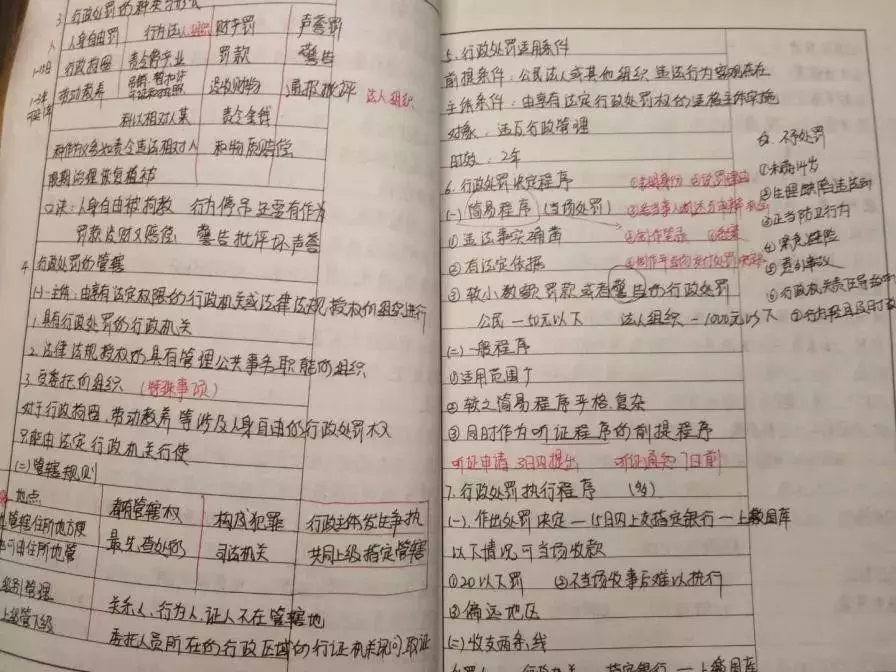 3. 行政处罚的种类与形式
人身自由罚 行为法人组织 财产罚 声誉罚
1-15日 行政拘留 责令停产业 罚款 警告
1-3年 劳动教养 没收财物 通报批评 法人组织
科以相对人某 责令金钱
种作为义务如责令违法相对人 和物质赔偿
限期治理恢复植被
口诀：人身自由被拘教 行为停吊还要有作为
罚款没财又赔偿 警告批评坏声誉
4. 行政处罚的管辖
(一)主体：由享有法定权限的行政机关或法律法规授权的组织进行
1. 具有行政处罚的行政机关
2. 法律法规授权的具有管理公共事务职能的组织
3. 受委托的组织 (特殊事项)
对于行政拘留、劳动教养等涉及人身自由的行政处罚权
只能由法定行政机关行使
(二)管辖规则
地点 都有管辖权 构成犯罪 行政主体发生争执
管辖住所地方便 最先查处的 司法机关 共同上级指定管辖
可由住所地管
级别管理 关系人、行为人、证人不在管辖地
上级管下级 委托人员所在的行政区域的行证机关询问、取证
5. 行政处罚适用条件
前提条件：公民法人或其他组织违法行为客观存在
主体条件：由享有法定行政处罚权的适格主体实施
对象：违反行政管理
时效：2年
6. 行政处罚决定程序 ①表明身份 ②说罚理由
(一) 简易程序 (当场处罚)
① 违法事实确凿 ④制作笔录
② 有法定依据
③ 较小数额罚款或者警告的行政处罚
公民—50元以下 法人组织—1000元以下
(二)一般程序
①适用范围广
② 较之简易程序严格、复杂
③ 同时作为听证程序的前提程序
听证申请 3日内提出 听证通知 7日前
7. 行政处罚执行程序 (多)
(一). 作出处罚决定—15日内上交指定银行—上缴国库
以下情况可当场收款
①20以下罚 ②不当场收事后难以执行
③ 偏远地区
(二)收支两条线
行政机关 指定银行—上缴国库
8. 不予处罚
①未满14岁
②生理缺陷违法的
③正当防卫行为
④紧急避险
⑤意外事故
⑥行政机关责任导致的
⑦行为轻且及时改